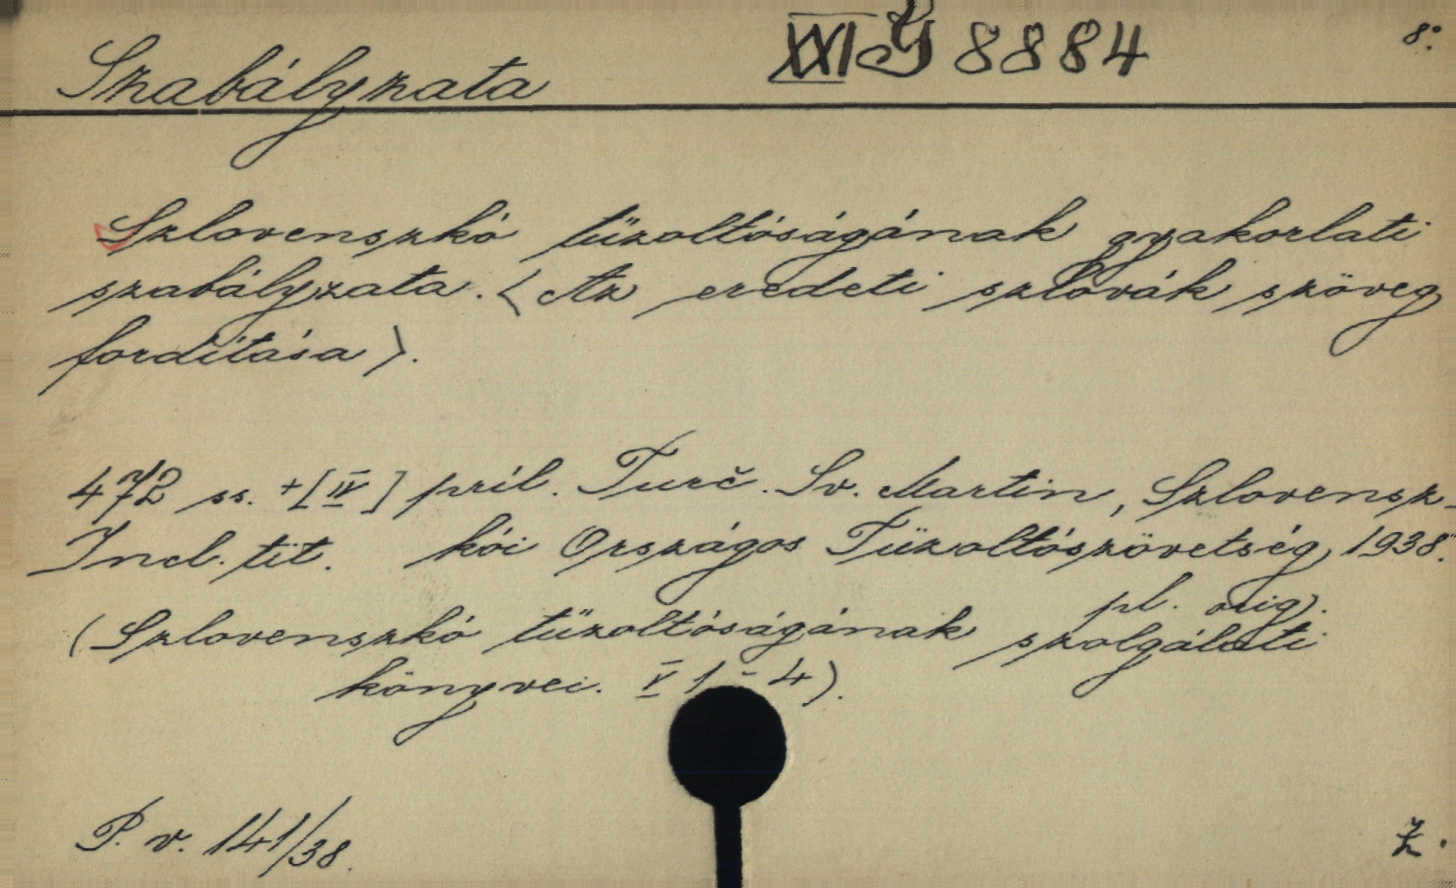 Szabályzata XXI G 8884 8°.
Szlovenszkó tűzoltóságának gyakorlati
szabályzata. <Az eredeti szlovák szöveg
fordítása>.
472 ss. + [IV] príl. Turč. Sv. Martin, Szlovensz-
Incl. tit. kói Országos Tűzoltószövetség, 1938.
pl. orig).
(Szlovenszkó tűzoltóságának szolgálati
könyvei. V 1-4).
P. v. 141/38.
Z.